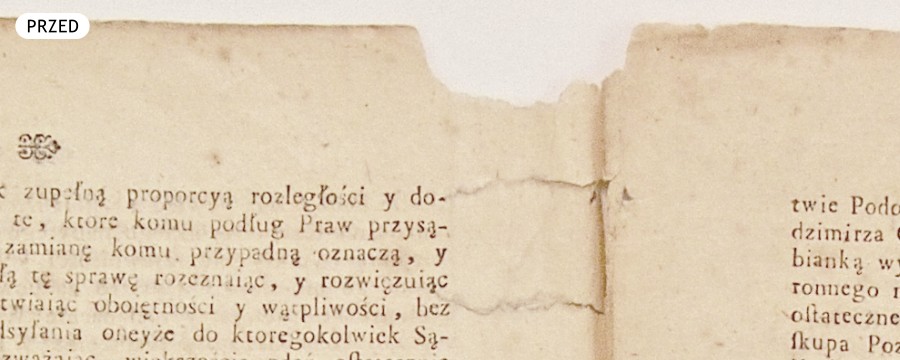 PRZED
zupełną proporcyą rozległości y do-
te, ktore komu podług Praw przysą-
zamianę komu przypadną oznaczą, y
tę sprawę rozeznaiąc, y rozwięzuiąc
obojętności y wątpliwości, bez
oneyże do ktoregokolwiek Są-
twie Podo
dzimirza
bianką wy
ronnego
oſtateczne
ſkupa Poz